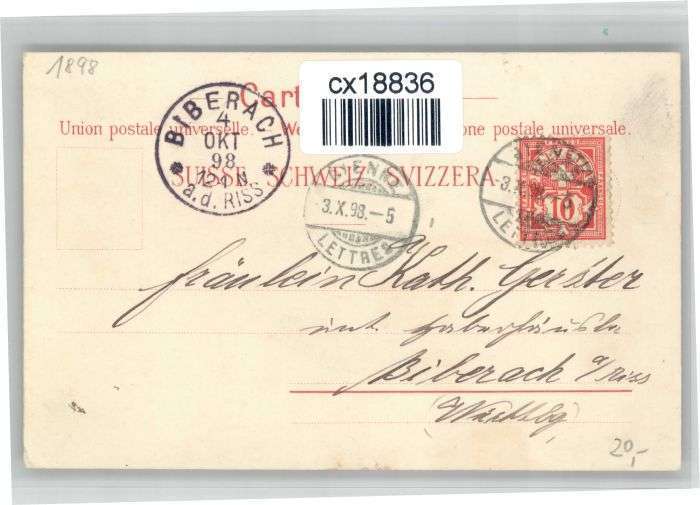 1898
cx18836
Cart
Union postale universelle. We one postale universale.
SUISSE. SCHWEIZ. SVIZZERA.
BIBERACH
4.
OKT
98
12-1 N
a.d. RISS.
3.X.98.-5
LETTRES
3.X
LET
HELVETIA
10
Fräulein Kath. Gerster
Biberach a/Riss
20,-